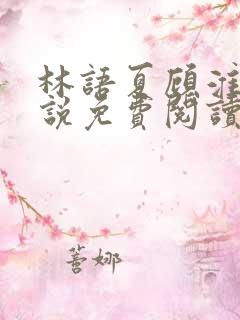 林語夏顧淮
說免費閱讀
善娜